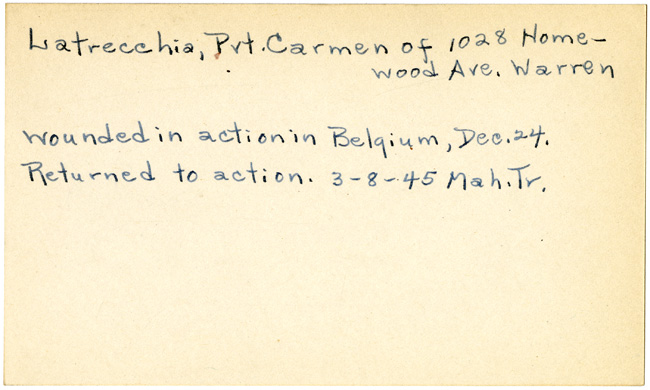 Latrecchia, Pvt. Carmen of 1028 Home-
wood Ave. Warren
wounded in action in Belgium, Dec. 24.
Returned to action. 3-8-45 Mah. Tr.